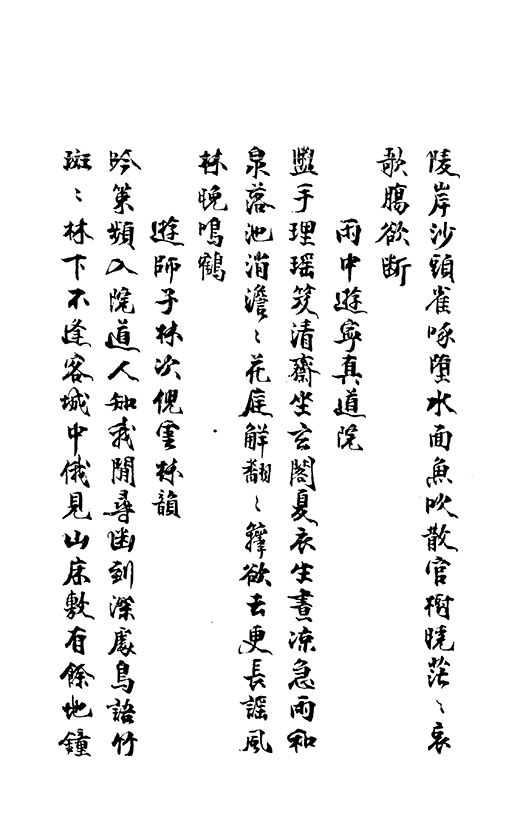 陵岸沙頭雀啄墮水面魚吹散官樹曉茫〻哀
歌腸欲断
雨中遊寧真道院
盥手理瑶笈清齋坐玄閣夏衣生晝凉急雨和
泉落池消澹〻花庭解翻〻籜欲去更長謡風
林晚鳴鶴
遊師子林次倪雲林韻
吟策頻入院道人知我閒尋幽到深處鳥語竹
斑〻林下不逢客城中俄見山床敷有餘地鐘